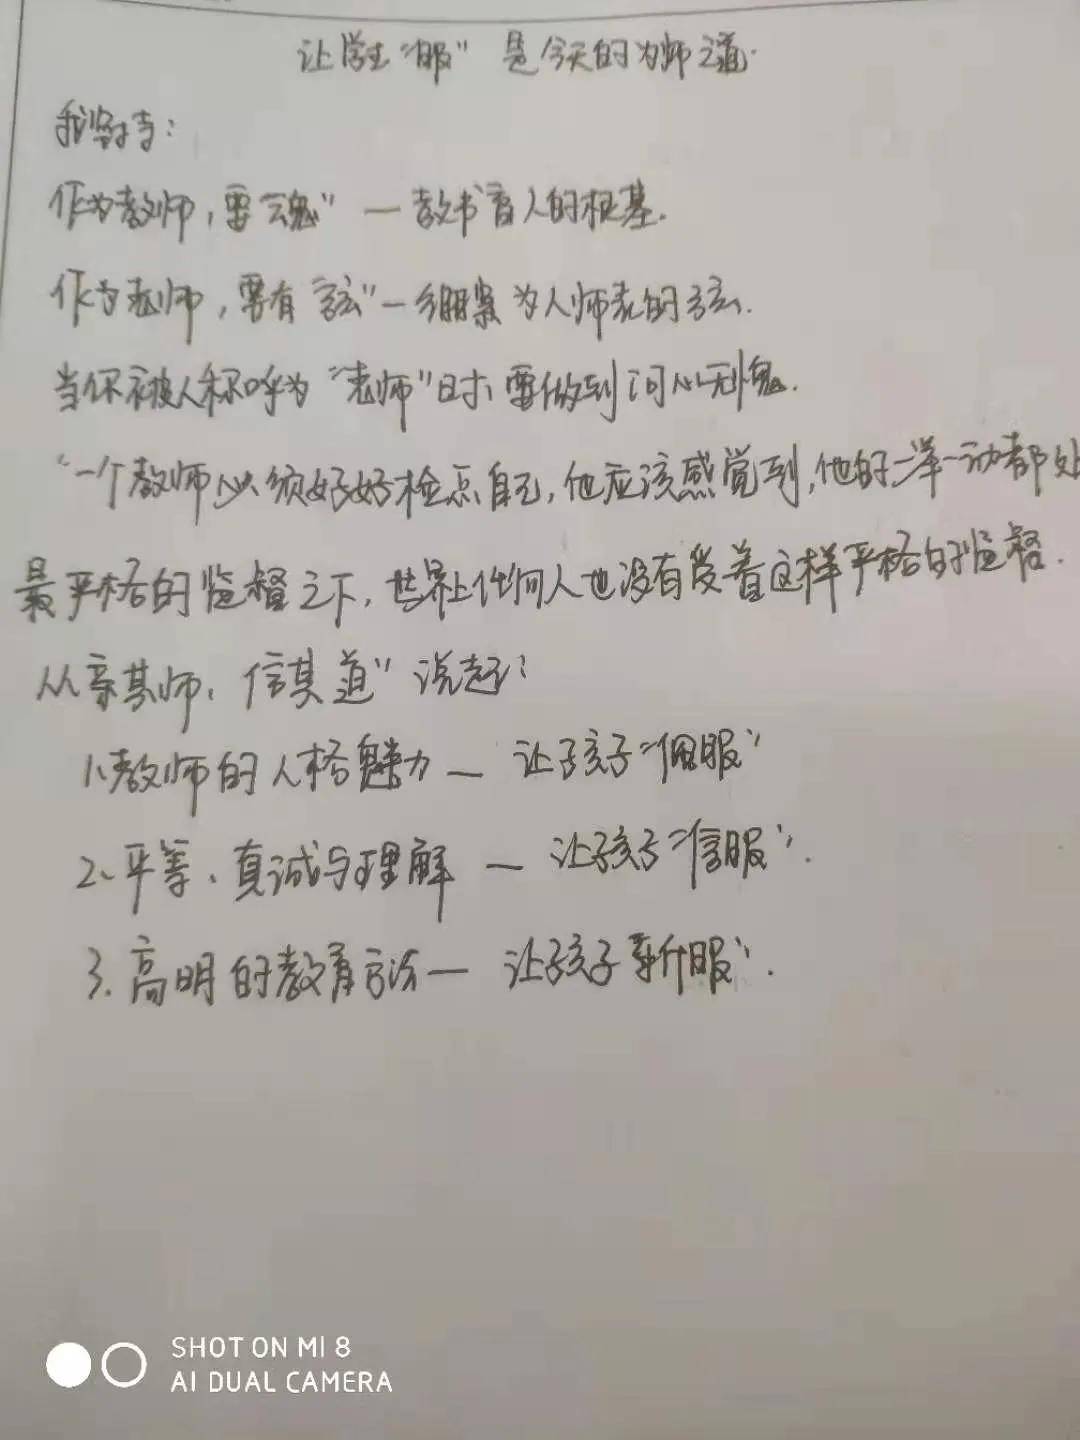 让学生“服”是今天的为师之道.
我坚持:
作为教师,要“魂”一教书育人的根基.
作为老师,要有“弦”一绷紧为人师表的弦.
当你被人称呼为“老师”时要做到问心无愧.
“一个教师必须好好检点自己,他应该感觉到,他的一举一动都处
最严格的监督之下,世界上任何人也没有受着这样严格的监督.
从亲其师,信其道”说起:
1、教师的人格魅力一 让孩子“佩服”
2、平等、真诚与理解 一 让孩子“信服”.
3.高明的教育方法一 让孩子 服”.
SHOT ON MI 8
AI DUAL CAMERA